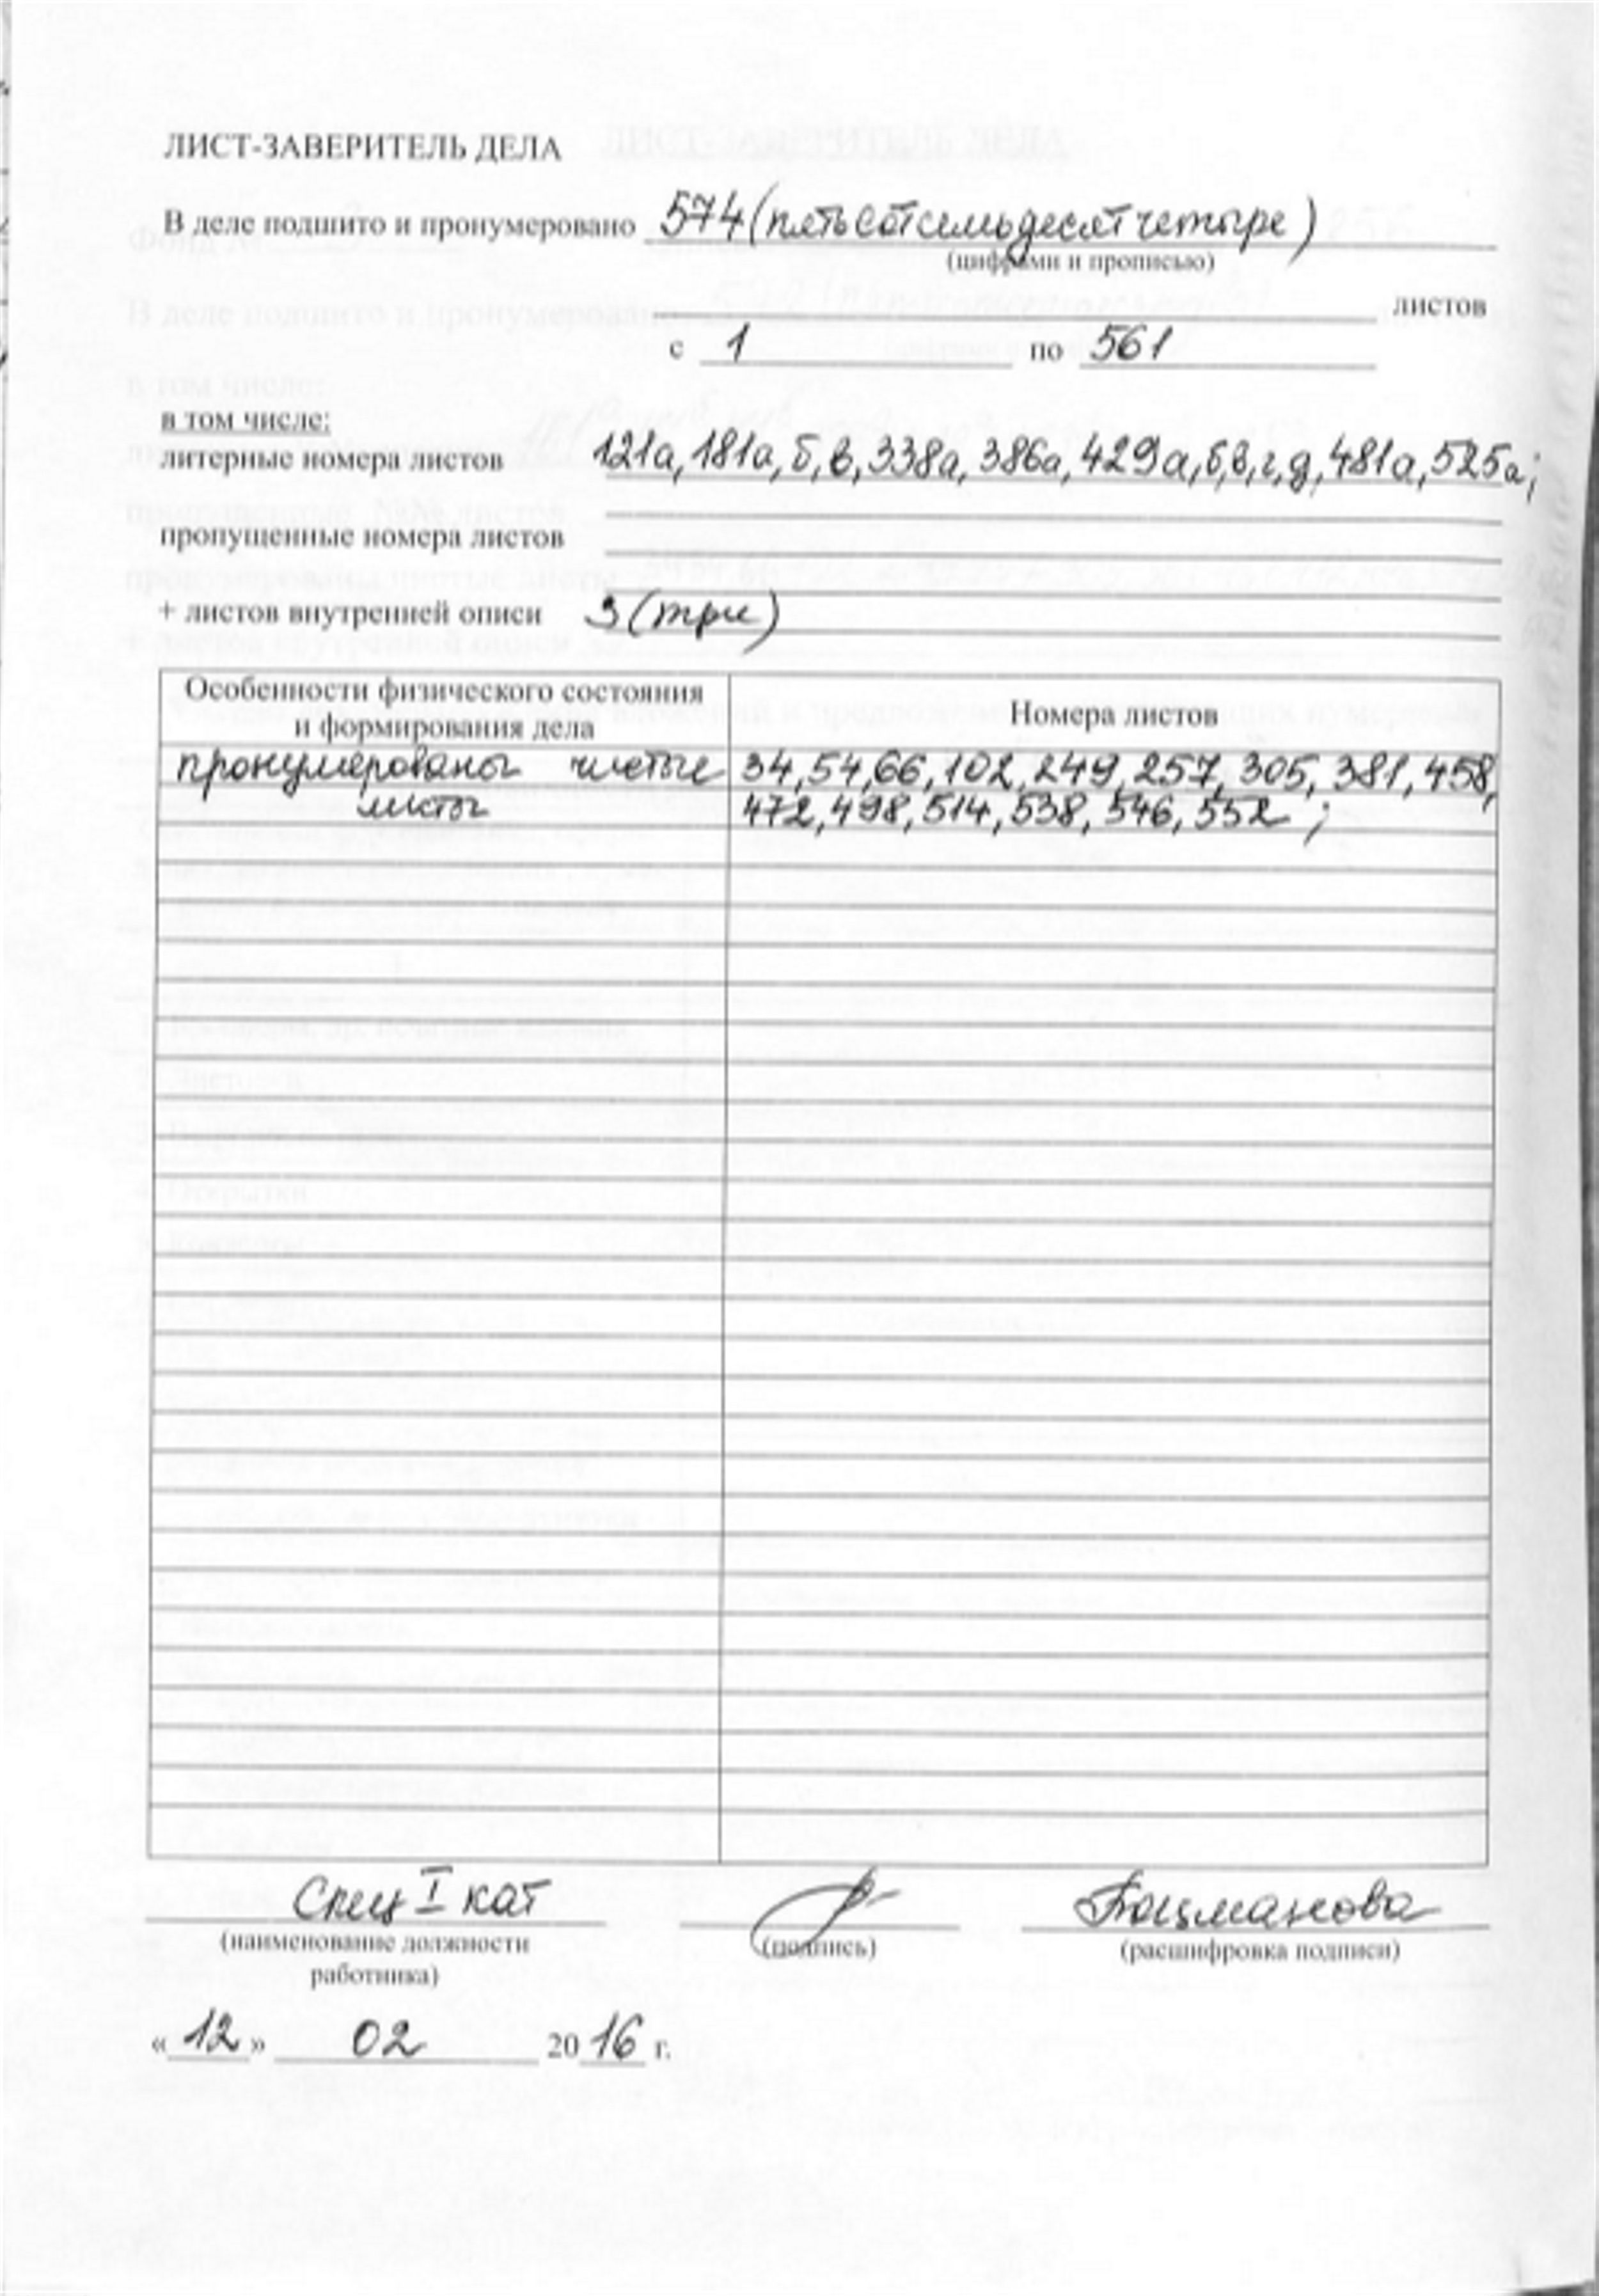 ЛИСТ-ЗАВЕРИТЕЛЬ ДЕЛА
В деле подшито и пронумеровано 574 (пятьсот семьдесят четыре)
(цифрами и прописью)
листов
с 1 по 561
в том числе:
литерные номера листов 121а, 181а, б, в, 338а, 386а, 429а, б, в, г, д, 481а, 525а;
пропущенные номера листов
+ листов внутренней описи 3 (три)
Особенности физического состояния Номера листов
и формирования дела
пронумерованы чистые 34, 54, 66, 102, 249, 257, 305, 381, 458,
листы 472, 498, 514, 538, 546, 552;
Спец I кат Боцманова
(наименование должности (подпись) (расшифровка подписи)
работника)
« 12 » 02 20 16 г.